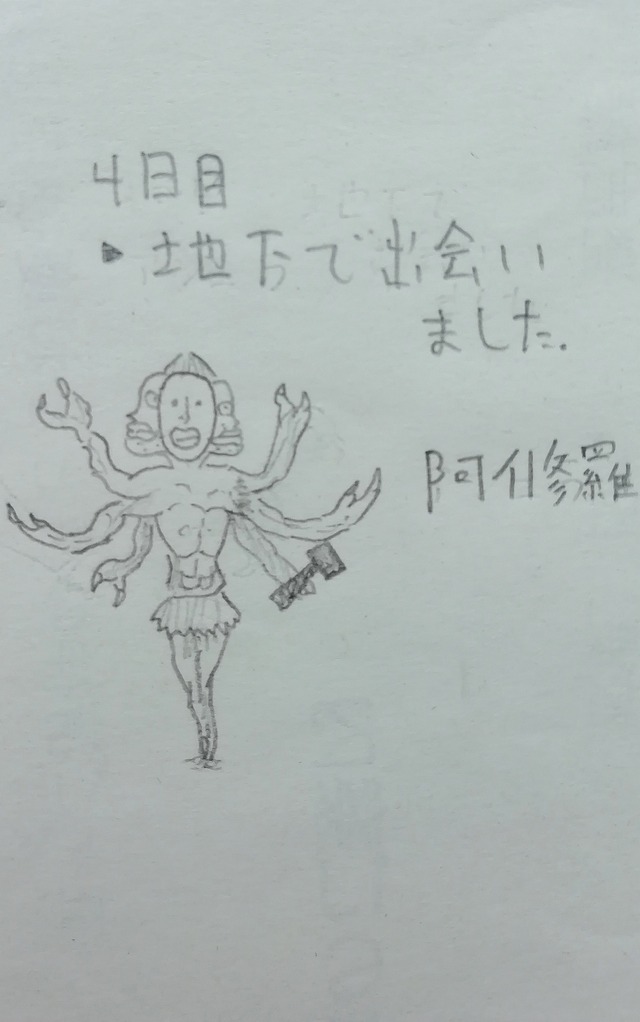 4日目
▶地下で出会い
ました.
阿修羅